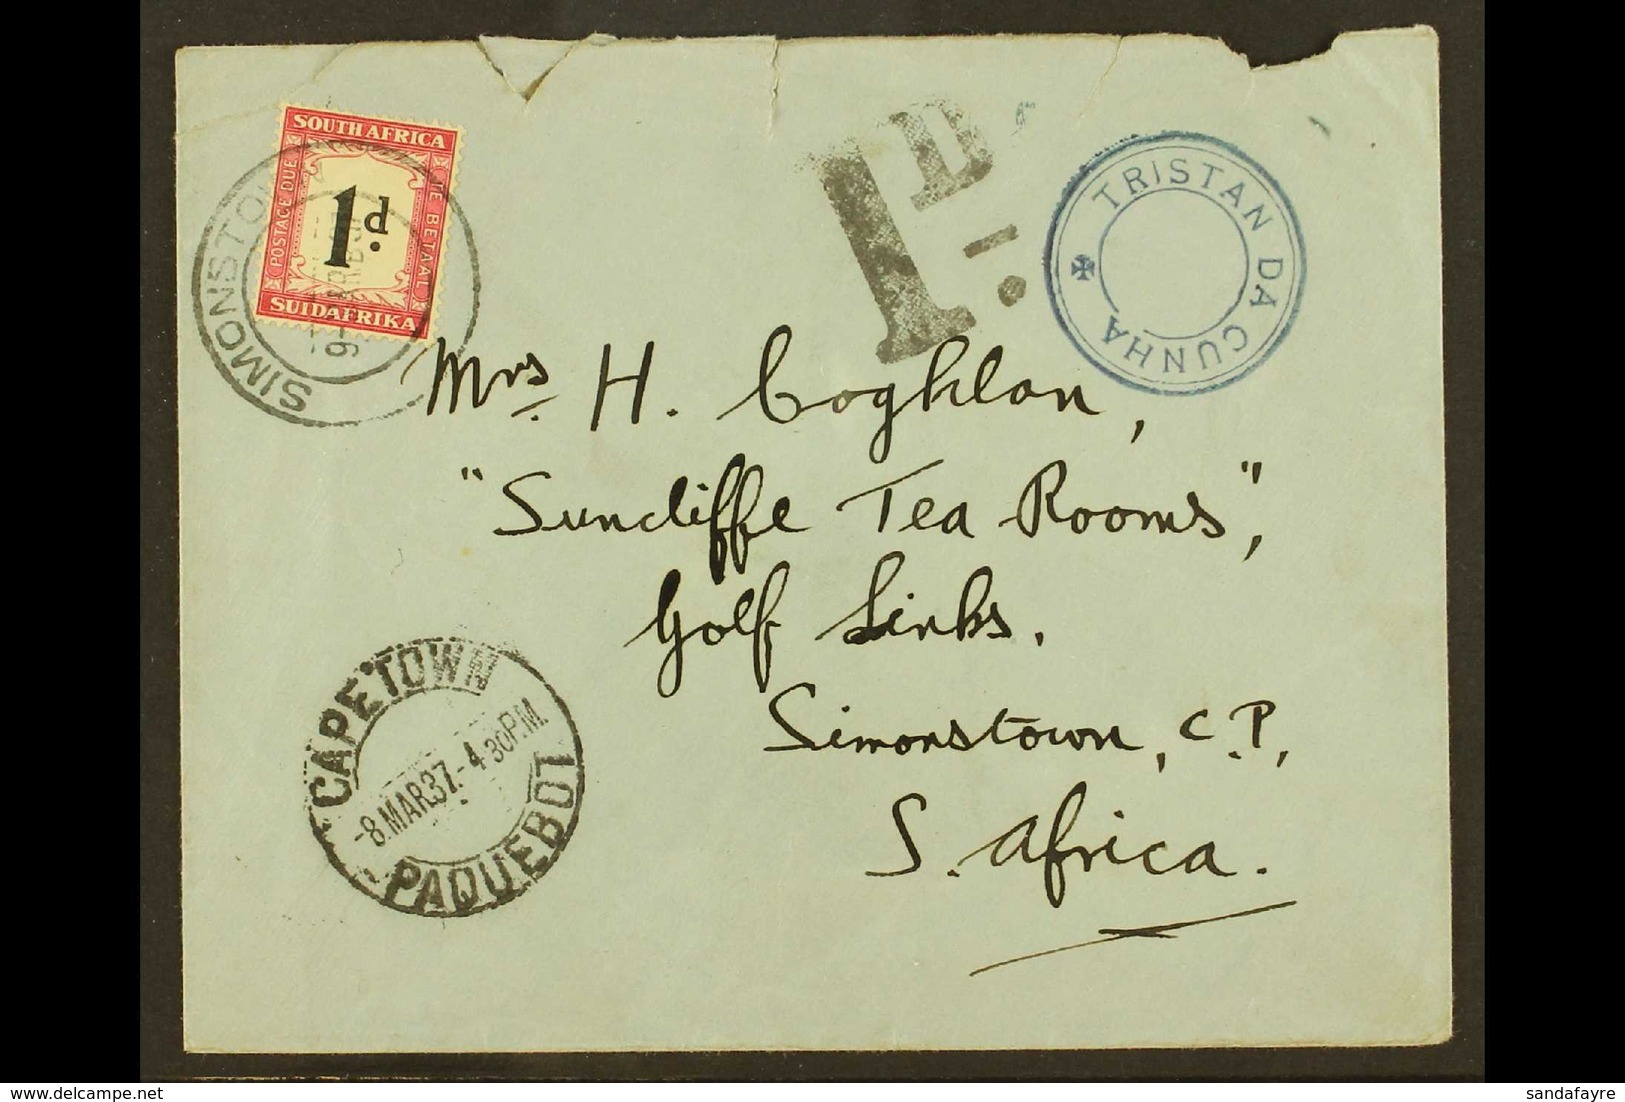 SOUTH AFRICA
POSTAGE DUE
TE BETAAL
1d.
SUIDAFRIKA
SIMONSTOWN
1D.
TRISTAN DA CUNHA
Mrs. H. Coghlan,
"Suncliffe Tea Rooms",
Golf Links.
Simonstown, C.P.,
S. Africa.
CAPETOWN
-8.MAR37.-4 30P.M.
PAQUEBOT
sandafayre